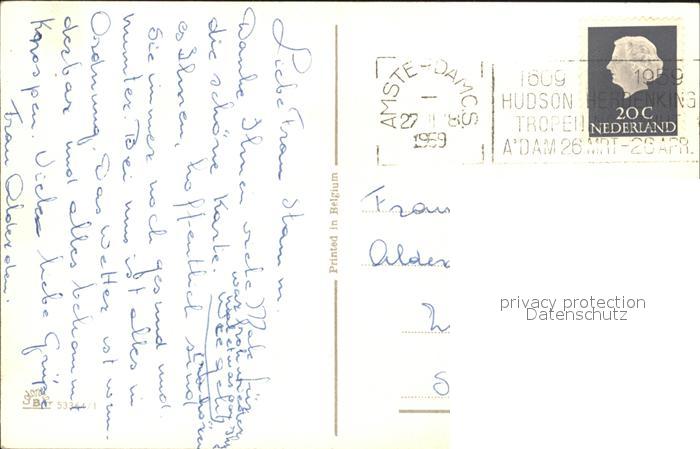 Liebe Frau Stamm.
Danke Ihnen viele Male für
die schöne Karte. Wie geht
es Ihnen, hoffentlich sind
Sie immer noch gesund und
munter. Bei uns ist alles in
Ordnung. Das Wetter ist wun-
derbar und alles bekommt
Knospen. Viele liebe Grüße
Frau Alderden.
Printed in Belgium
53364/1
AMSTERDAM CS
27 II 18
1959
1609 1959
HUDSON HERDENKING
TROPEN
A'DAM 26 MRT-26 APR.
20C
NEDERLAND
Frau
Alder
privacy protection
Datenschutz